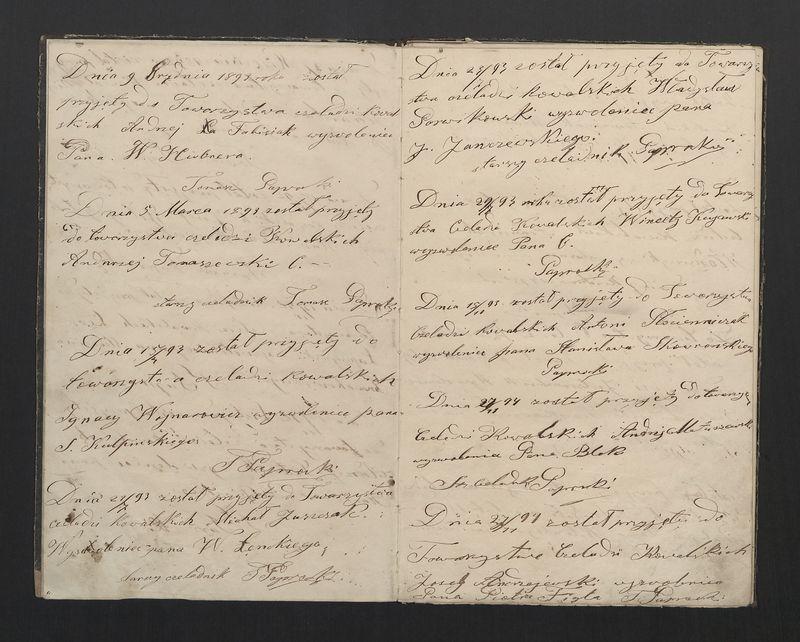 Dnia 9 Grudnia 1892 roku został
przyjęty do Towarzystwa czeladzi kowal-
skich Andrzej Fabisiak wyzwoleniec
Pana W. Hubnera.
Tomasz Paprocki
Dnia 5 Marca 1893 został przyjęty
do towarzystwa czeladzi Kowalskich
Andrzej Tomaszewski C.
starszy czeladnik Tomasz Paprocki
Dnia 93 został przyjęty do
towarzystwa czeladzi kowalskich
Ignacy Wojnarowicz wyzwoleniec pana
S. Kulpinskiego
T Paprocki
Dnia 93 został przyjęty do Towarzystwa
czeladzi kowalskich Michał
Wyzwoleniec pana W. Łenckiego
starszy czeladnik T Paprocki
Dnia 93 został przyjęty do Towarzy-
stwa czeladzi kowalskich Władysław
wyzwoleniec pana
J. Janczewskiego
starszy czeladnik Paprocki
Dnia 93 roku został przyjęty do Towarzy
stwa Czeladzi Kowalskich Kujawski
wyzwoleniec Pana C.
Paprocki
Dnia 93 został przyjęty do Towarzystwa
Czeladzi Kowalskich Antoni
wyzwoleniec pana Stanisława Skowronskiego
Paprocki
Dnia 94 został przyjęty do towarzy
Czeladzi Kowalskich Andrzej Matuszewski
wyzwolenia Pana Blok
Paprocki
Dnia 94 został przyjęty do
Towarzystwa Czeladzi Kowalskich
Józef Andrzejewski wyzwoleniec
Pana Piotra Figla T Paprocki